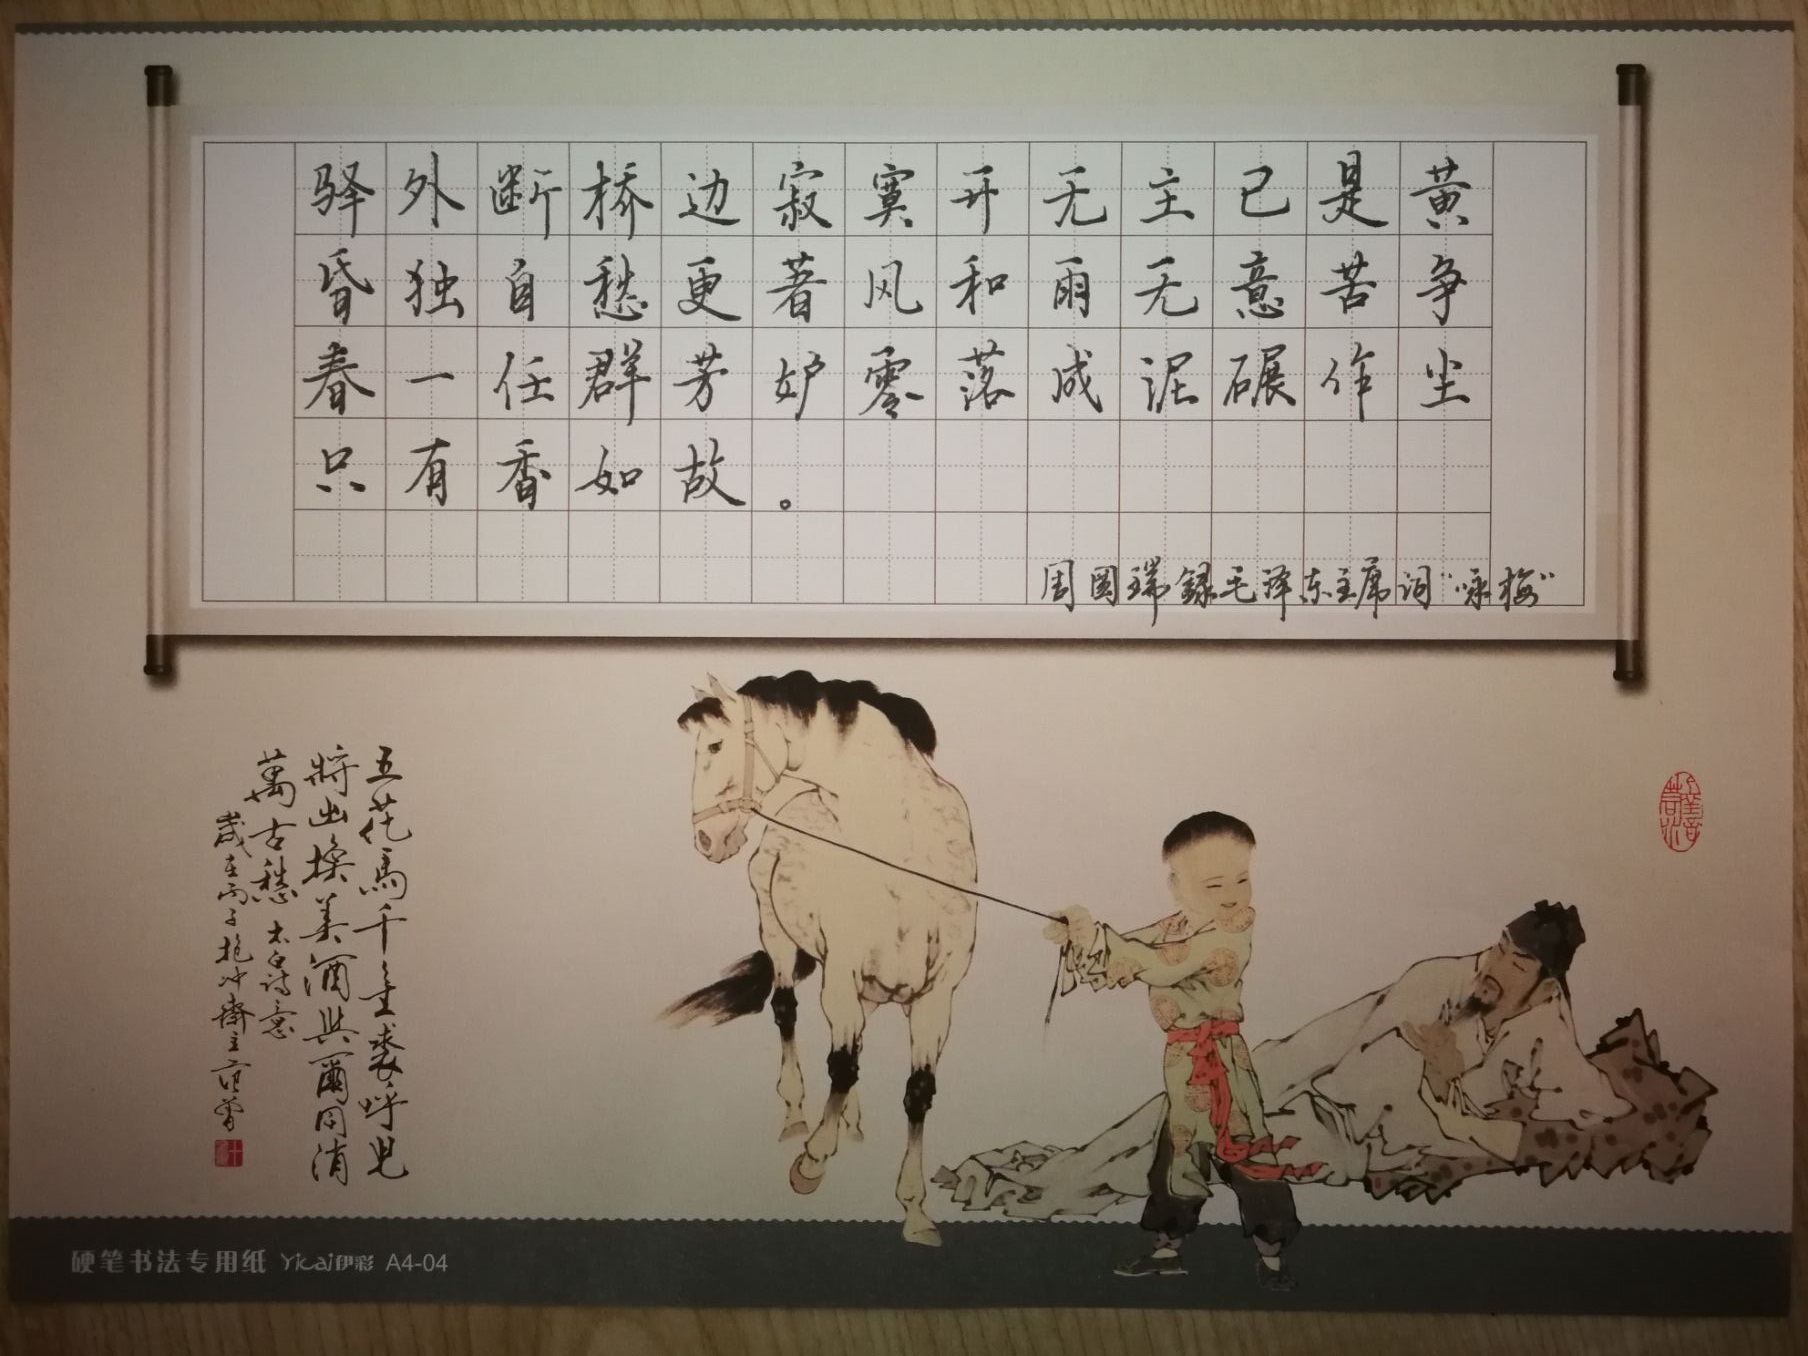 驿外断桥边寂寞开无主已是黄
昏独自愁更著风和雨无意苦争
春一任群芳妒零落成泥碾作尘
只有香如故。
周国瑞録毛泽东主席词“咏梅”
五花馬千金裘呼兒
將出換美酒與爾同消
萬古愁 太白詩意
歲在丙子抱冲齋主范曾
硬笔书法专用纸 Yicai伊彩 A4-04